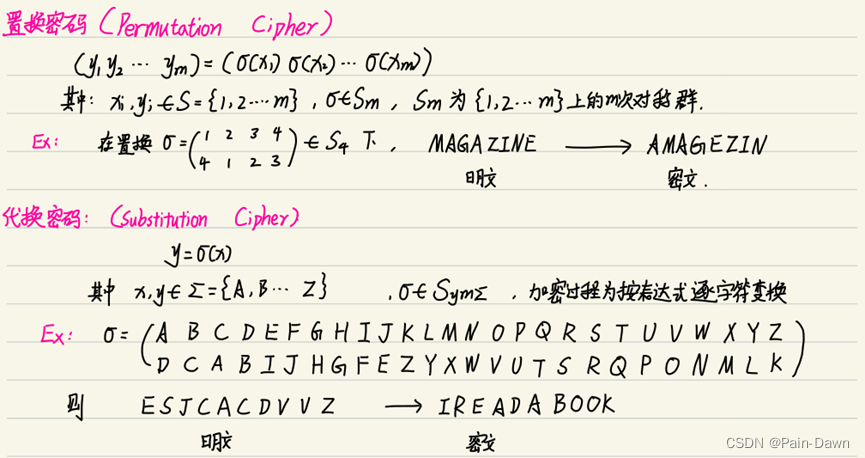 置换密码 (Permutation Cipher)
(y₁ y₂ ⋯ yₘ) = (σ(x₁) σ(x₂) ⋯ σ(xₘ))
其中: xᵢ, yᵢ ∈ S = {1, 2 ⋯ m}, σ ∈ Sₘ, Sₘ 为 {1, 2 ⋯ m} 上的m次对称群.
Ex: 在置换 σ = (1 2 3 4 / 4 1 2 3) ∈ S₄ 下, MAGAZINE ⟶ AMAGEZIN
明文 密文.
代换密码: (Substitution Cipher)
y = σ(x)
其中 x, y ∈ Σ = {A, B ⋯ Z} , σ ∈ SymΣ , 加密过程为按表达式逐字符变换
Ex: σ = (A B C D E F G H I J K L M N O P Q R S T U V W X Y Z
D C A B I J H G F E Z Y X W V U T S R Q P O N M L K)
则 E S J C A C D V V Z ⟶ I R E A D A B O O K
明文 密文
CSDN @Pain-Dawn